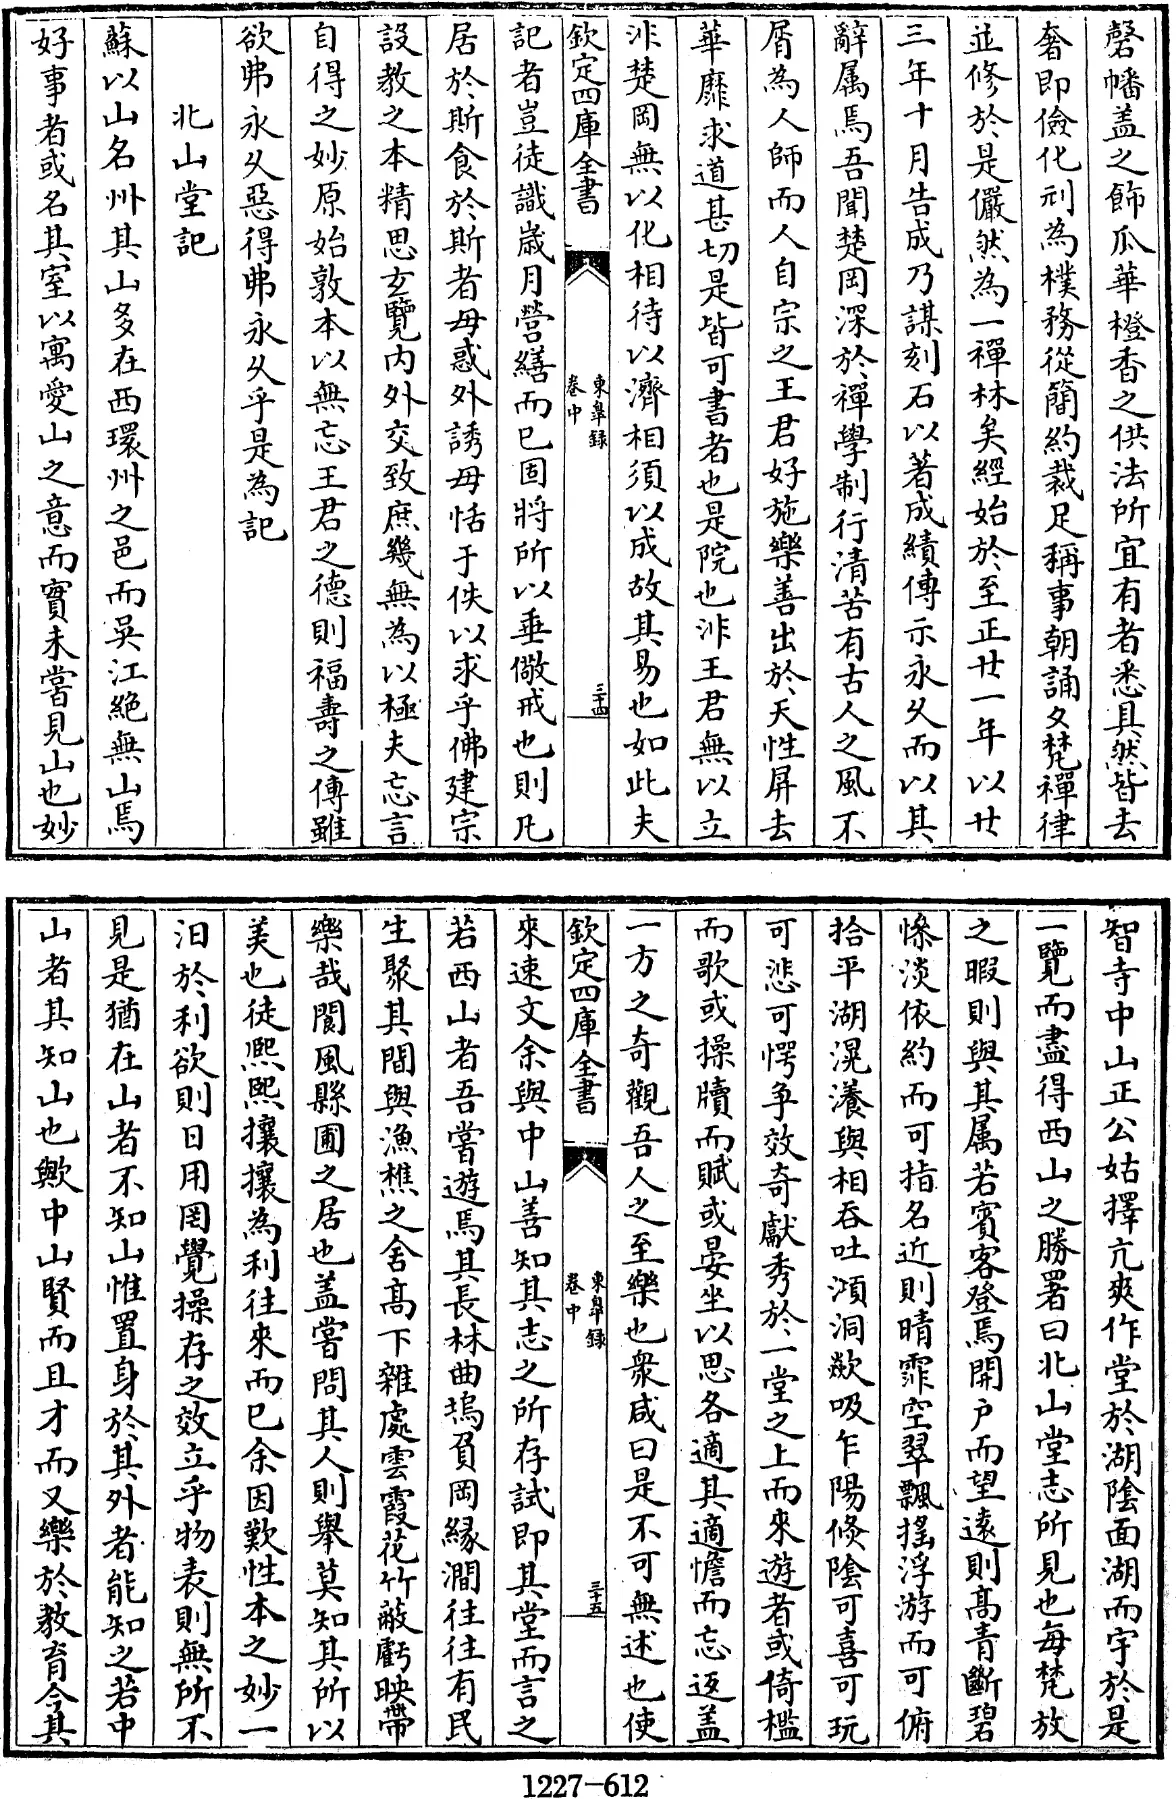 磬幡盖之飾瓜華橙香之供法所宜有者悉具然皆去
奢即儉化刓為樸務從簡約裁足稱事朝誦夕梵禪律
並修於是儼然為一禪林矣經始於至正廿一年以廿
三年十月告成乃謀刻石以著成績傳示永久而以其
辭属焉吾聞楚岡深於禪學制行清苦有古人之風不
屑為人師而人自宗之王君好施樂善出於天性屏去
華靡求道甚切是皆可書者也是院也非王君無以立
非楚岡無以化相待以濟相須以成故其易也如此夫
欽定四庫全書
東臯録
卷中
三十四
記者豈徒識歲月營繕而已固將所以垂儆戒也則凡
居於斯食於斯者毋惑外誘毋恬于佚以求乎佛建宗
設教之本精思玄覽内外交致庶幾無為以極夫忘言
自得之妙原始敦本以無忘王君之德則福壽之傳雖
欲弗永久惡得弗永久乎是為記
北山堂記
蘇以山名州其山多在西環州之邑而吳江絶無山焉
好事者或名其室以寓愛山之意而實未嘗見山也妙
智寺中山正公姑擇亢爽作堂於湖隂面湖而宇於是
一覽而盡得西山之勝署曰北山堂志所見也每梵放
之暇則與其属若賓客登焉開户而望遠則髙青斷碧
慘淡依約而可指名近則晴霏空翠飄揺浮游而可俯
拾平湖滉瀁與相吞吐澒洞歘吸乍陽倐隂可喜可玩
可悲可愕争效奇獻秀於一堂之上而來遊者或倚檻
而歌或操牘而賦或晏坐以思各適其適憺而忘返盖
一方之奇觀吾人之至樂也衆咸曰是不可無述也使
欽定四庫全書
東臯録
卷中
三十五
來速文余與中山善知其志之所存試即其堂而言之
若西山者吾嘗遊焉其長林曲塢負岡縁澗往往有民
生聚其間與漁樵之舍髙下雜處雲霞花竹蔽虧映帶
樂哉閬風縣圃之居也盖嘗問其人則舉莫知其所以
美也徒熙熙攘攘為利往來而已余因歎性本之妙一
汩於利欲則日用罔覺操存之效立乎物表則無所不
見是猶在山者不知山惟置身於其外者能知之若中
山者其知山也歟中山賢而且才而又樂於教育今其
1227—612